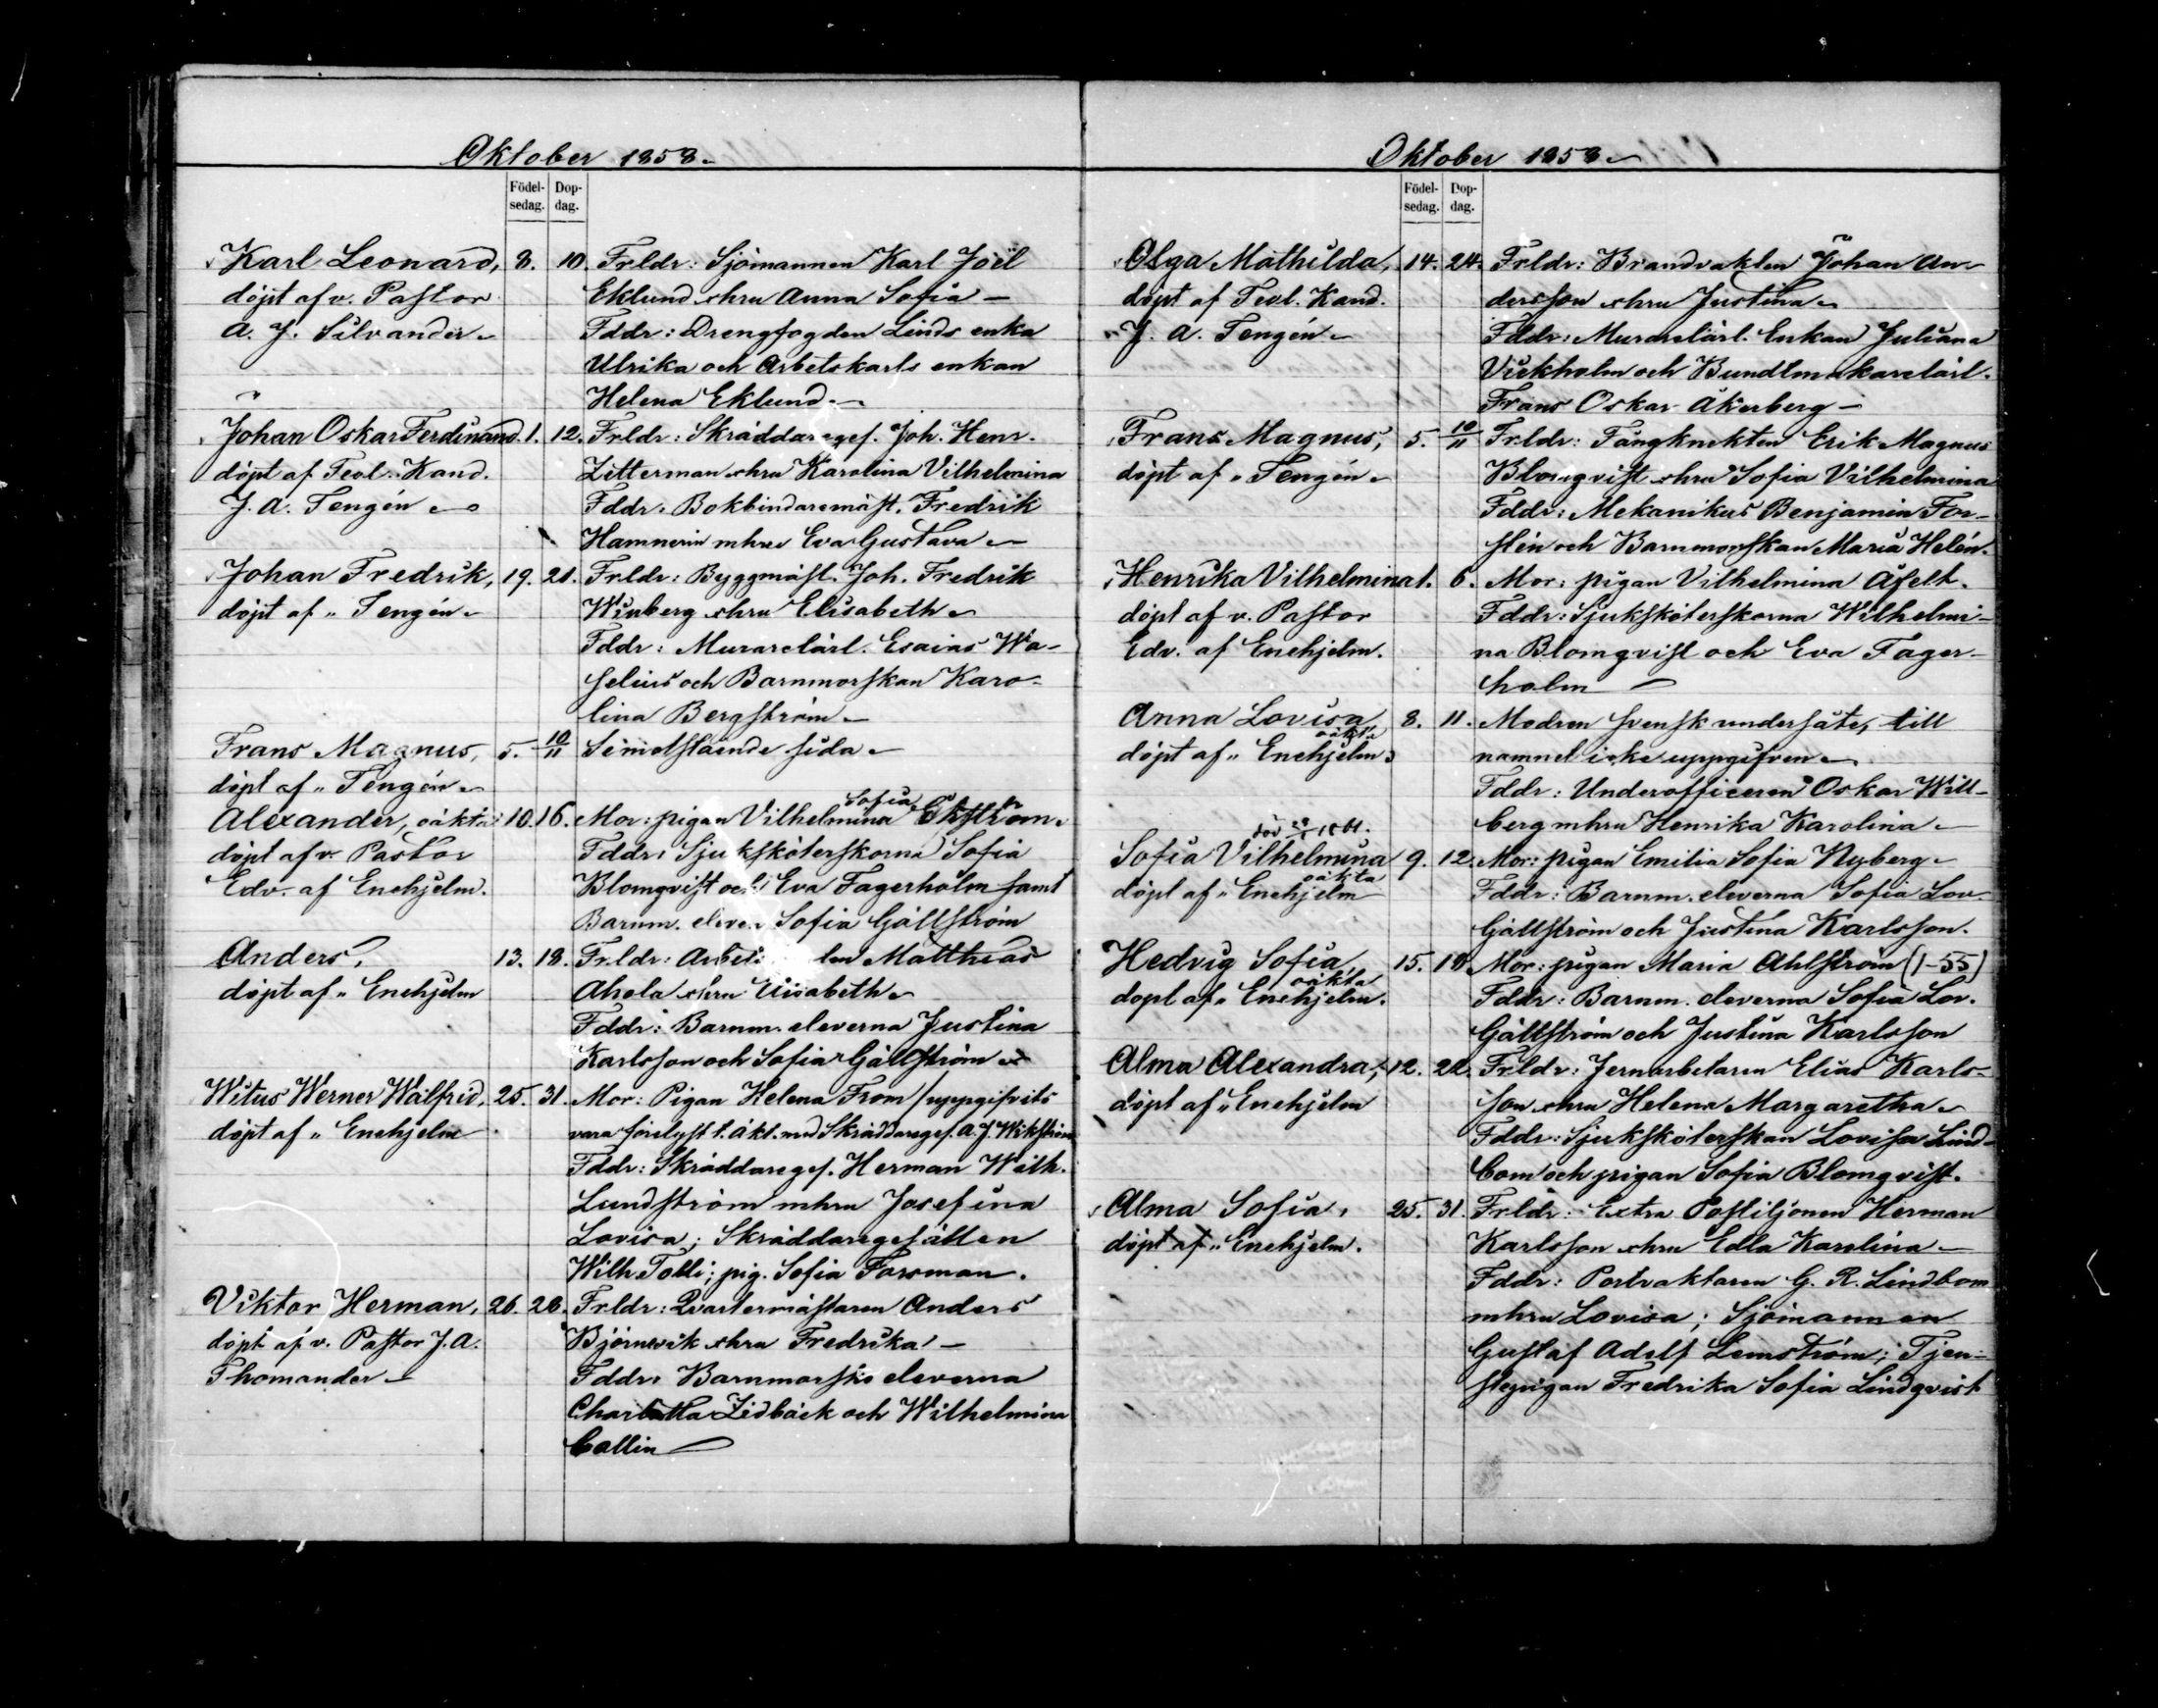 Oktober 1858.
Födel-
sedag.
Dop-
dag.
Karl Leonard, 8. 10. Frldr: Sjömannen Karl Joël
döpt af v. Pastor Eklund o hru Anna Sofia –
A. J. Silvander. Fddr: Drengfogden Linds enka
Ulrika och Arbetskarls enkan
Helena Eklund. –
Johan Oskar Ferdinand. 1. 12. Frldr: Skräddaregef. Joh. Henr.
döpt af Teol. Kand. Zitterman o hru Karolina Vilhelmina
J. A. Tengén Fddr. Bokbindaremäst. Fredrik
Hamnerin m hru Eva Gustava
Johan Fredrik, 19. 21. Frldr: Byggmäst. Joh. Fredrik
döpt af „ Tengén Winberg o hru Elisabeth
Fddr: Murarelärl. Esaias Wa-
selius och Barnmorskan Karo-
lina Bergström
Frans Magnus, 5. 10/11 Simotstående sida
döpt af „ Tengén
Alexander, oäkta 10. 16. Mor: pigan Vilhelmina Sofia Ekström.
döpt af v. Pastor Fddr: Sjuksköterskorna Sofia
Edv. af Enehjelm. Blomqvist och Eva Fagerholm samt
Barnm. eleven Sofia Gällström
Anders, 13. 18. Frldr: Matthias
döpt af „ Enehjelm Ahola o hru Elisabeth
Fddr: Barnm. eleverna Justina
Karlsson och Sofia Gällström
Witus Werner Walfrid, 25. 31. Mor: Pigan Helena From / uppgifvits
döpt af „ Enehjelm vara förelyst t. äkt. med Skräddaregef. A. J. Wikström
Fddr: Skräddaregef. Herman Wilh.
Lundström m hru Josefina
Lovisa; Skräddaregesällen
Wilh Tolli; pig. Sofia Forsman.
Viktor Herman, 26. 28. Frldr: Qvartermästaren Anders
döpt af v. Pastor J. A. Björnvik o hru Fredrika –
Thomander Fddr: Barnmorske eleverna
Charlotta Lidbäck och Wilhelmina
Collin
Oktober 1858
Födel-
sedag.
Dop-
dag.
Olga Mathilda, 14. 24. Frldr: Brandvakten Johan An-
döpt af Teol. Kand. dersson o hru Justina
J. A. Tengén Fddr: Murarelärl. Enkan Juliana
Vickholm och Bundtmakarelärl.
Frans Oskar Åkerberg –
Frans Magnus, 5. 10/11 Frldr: Fångknekten Erik Magnus
döpt af „ Tengén Blomqvist o hru Sofia Vilhelmina
Fddr: Mekanikus Benjamin For-
stén och Barnmorskan Maria Helén.
Henrika Vilhelmina 1. 6. Mor: pigan Vilhelmina Åfelt.
döpt af v. Pastor Fddr: Sjuksköterskorna Wilhelmi-
Edv. af Enehjelm. na Blomqvist och Eva Fager-
holm
Anna Lovisa 8. 11. Modren svensk undersåte, till
oäkta
döpt af „ Enehjelm. namnet icke uppgifven
Fddr: Underofficeren Oskar Will-
berg m hru Henrika Karolina
död 28/1 1861.
Sofia Vilhelmina 9. 12. Mor: pigan Emilia Sofia Nyberg
oäkta
döpt af „ Enehjelm Fddr: Barnm. eleverna Sofia Lov.
Gällström och Justina Karlsson.
Hedvig Sofia 15. 18. Mor: pigan Maria Ahlström (1-55)
oäkta
döpt af „ Enehjelm. Fddr: Barnm. eleverna Sofia Lov.
Gällström och Justina Karlsson
Alma Alexandra, 12. 22. Frldr: Jernarbetaren Elias Karls-
döpt af „ Enehjelm son o hru Helena Margaretha
Fddr: Sjuksköterskan Lovisa Lind-
bom och pigan Sofia Blomqvist.
Alma Sofia, 25. 31. Frldr: Extra Postiljonen Herman
döpt af „ Enehjelm. Karlsson o hru Edla Karolina
Fddr: Portvaktaren G. R. Lindbom
m hru Lovisa; Sjömannen
Gustaf Adolf Lemström; Tjen-
stepigan Fredrika Sofia Lindqvist